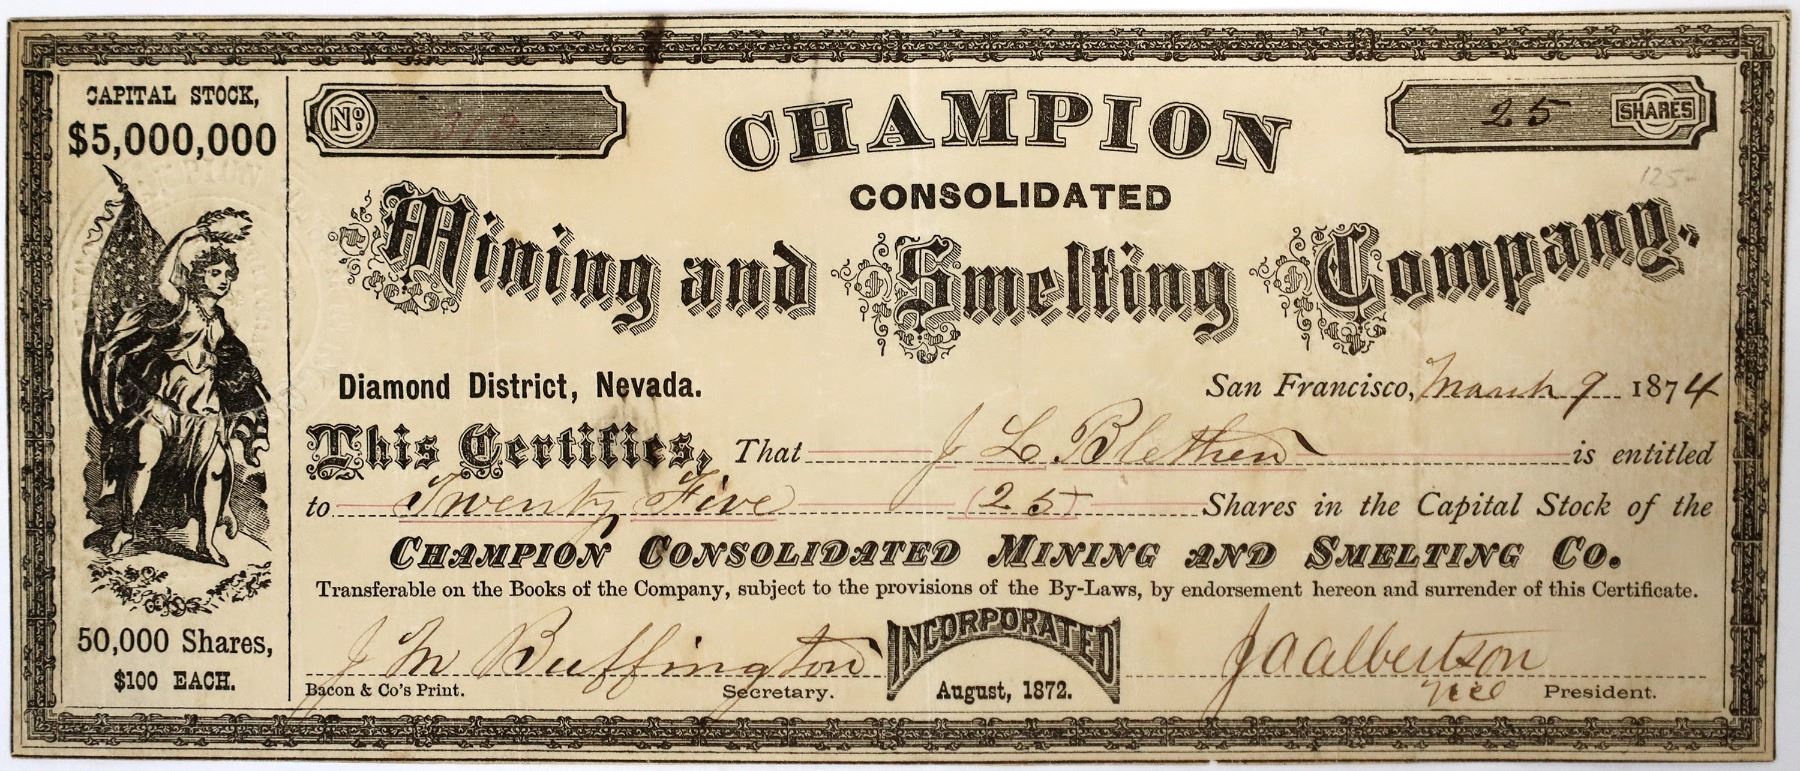 CAPITAL STOCK,
$5,000,000
50,000 Shares,
$100 EACH.
No.
25 SHARES
125-
CHAMPION
CONSOLIDATED
Mining and Smelting Company.
Diamond District, Nevada.
San Francisco, March 9 1874
This Certifies, That J L Blethen is entitled
to Twenty Five (25) Shares in the Capital Stock of the
CHAMPION CONSOLIDATED MINING AND SMELTING CO.
Transferable on the Books of the Company, subject to the provisions of the By-Laws, by endorsement hereon and surrender of this Certificate.
J M Buffington
Bacon & Co's Print. Secretary.
INCORPORATED
August, 1872.
J A Albertson
Vice President.